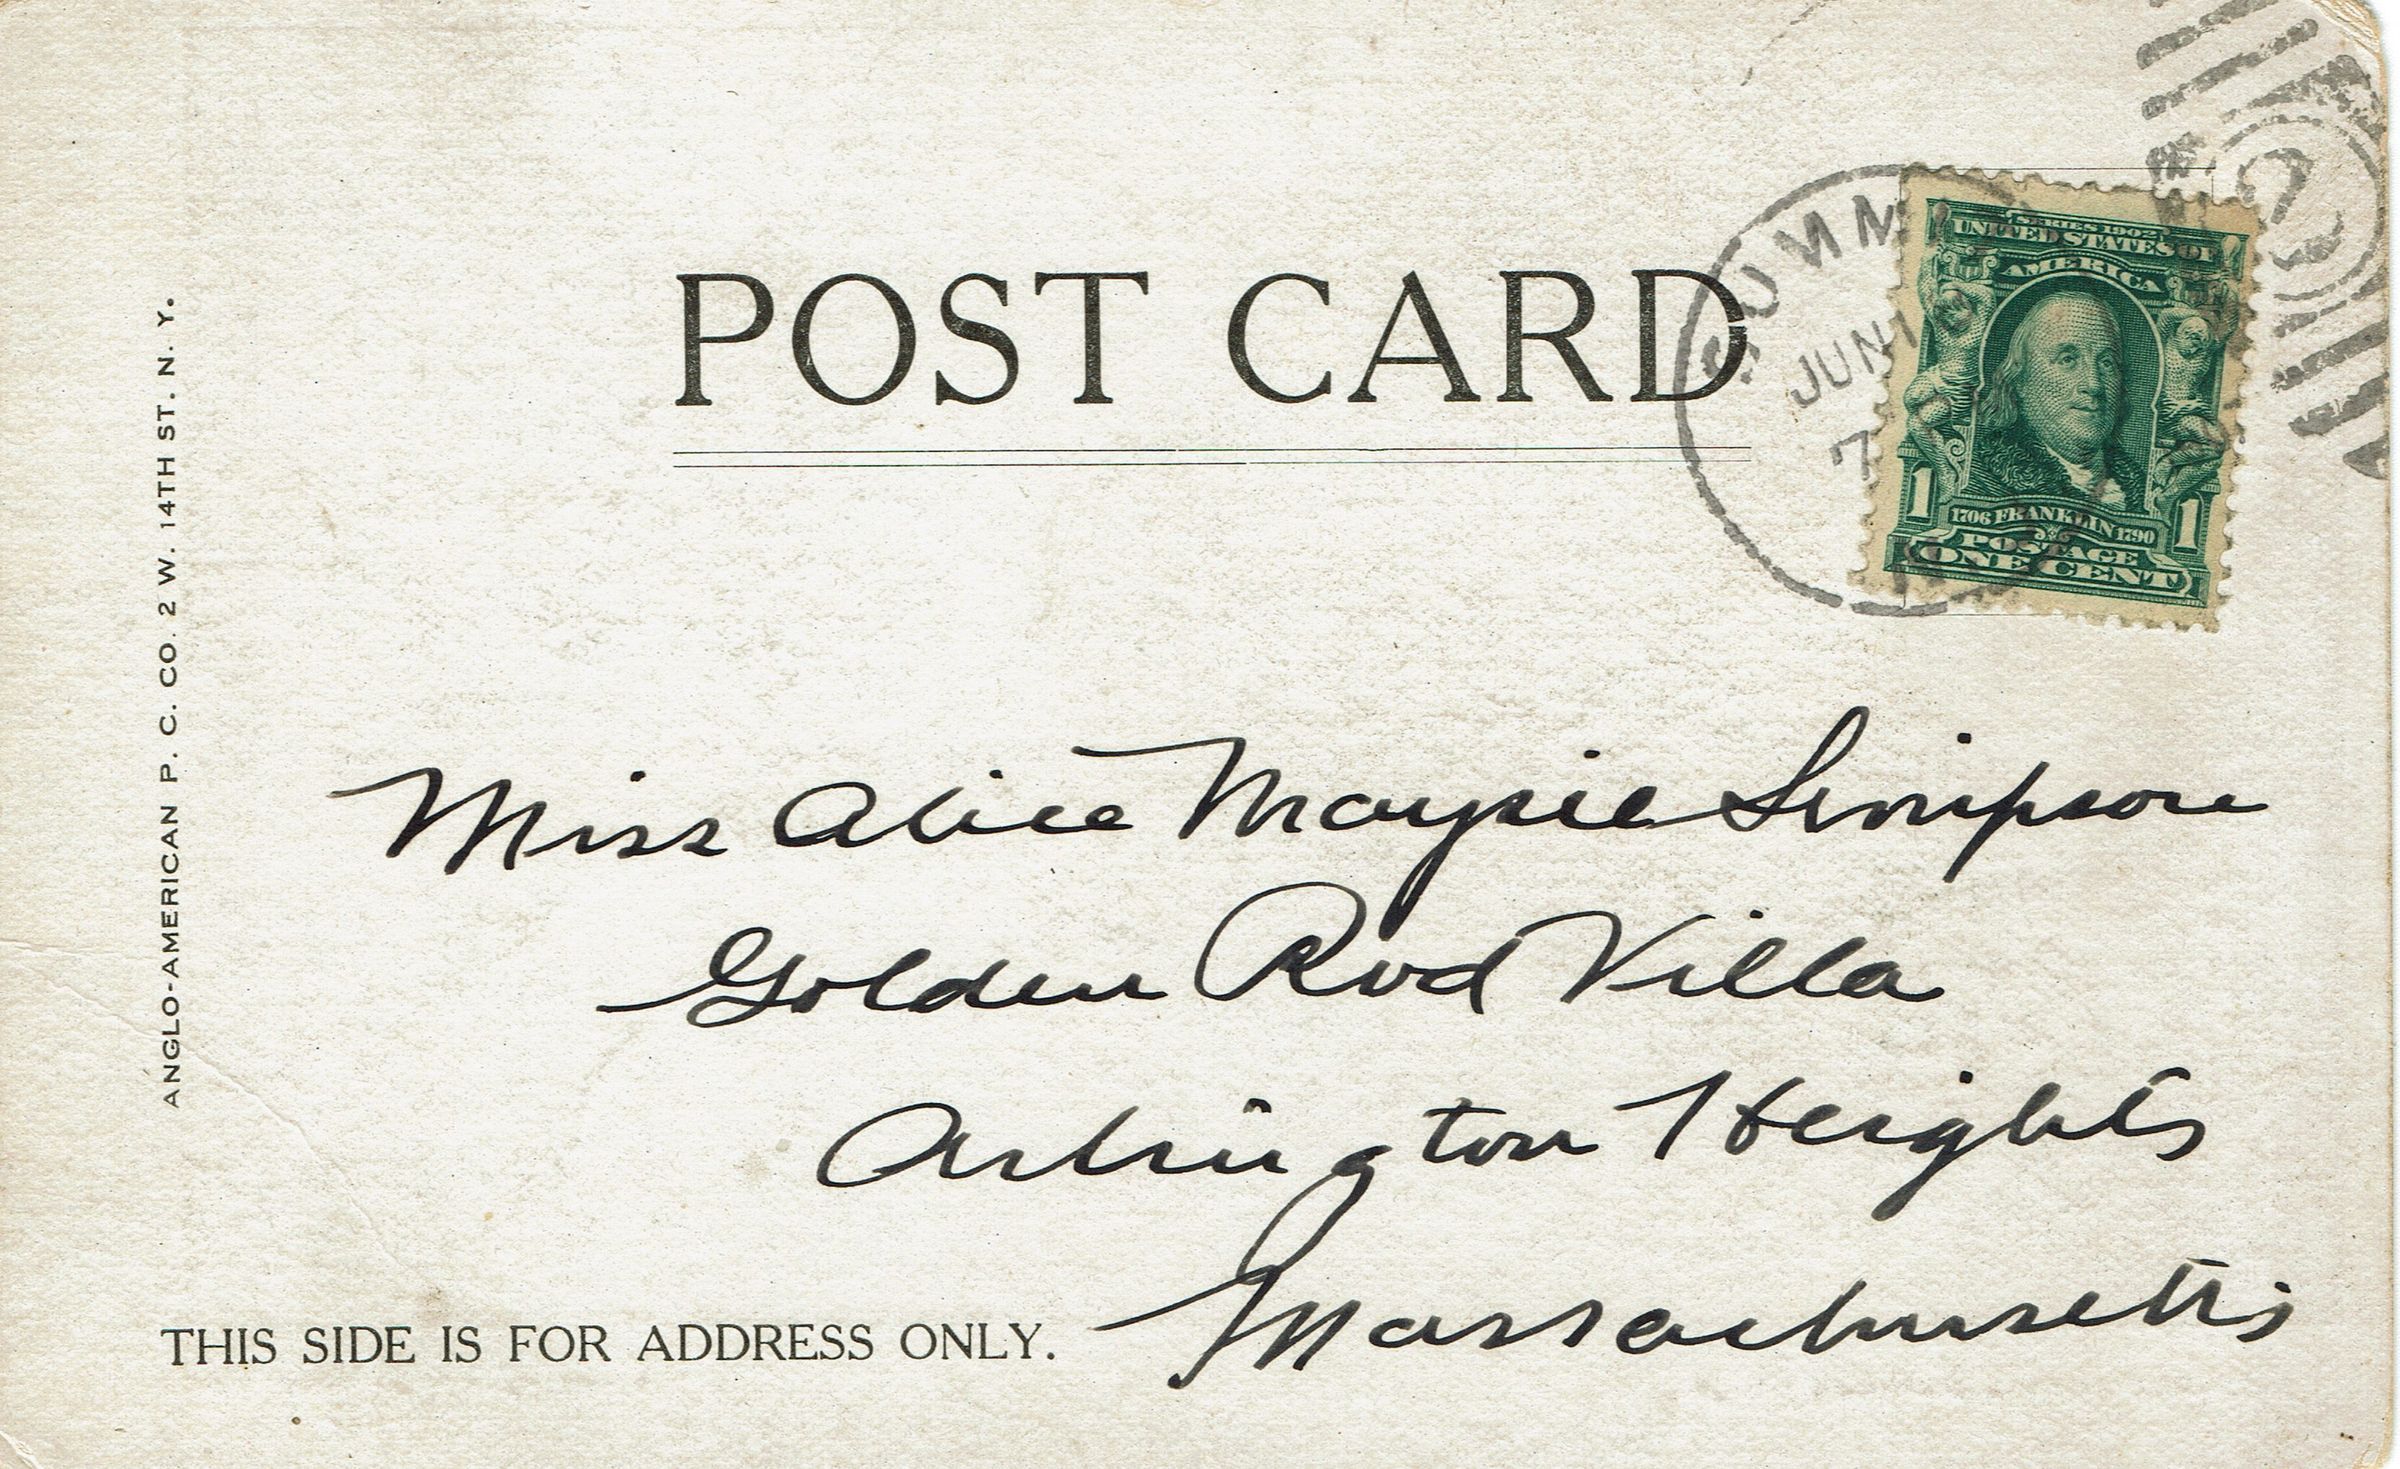 POST CARD
SUMM
JUN 1
7
2
SERIES 1902
UNITED STATES OF
AMERICA
1706 FRANKLIN 1790
1 1
POSTAGE
ONE CENT
Miss Alice Maysie Simpson
Golden Rod Villa
Arlington Heights
Massachusetts
THIS SIDE IS FOR ADDRESS ONLY.
ANGLO-AMERICAN P. C. CO. 2 W. 14TH ST. N. Y.